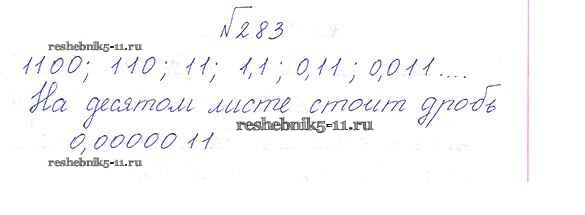 №283
reshebnik5-11.ru
1100; 110; 11; 1,1; 0,11; 0,011....
На десятом листе стоит дробь
reshebnik5-11.ru
0,0000011
reshebnik5-11.ru